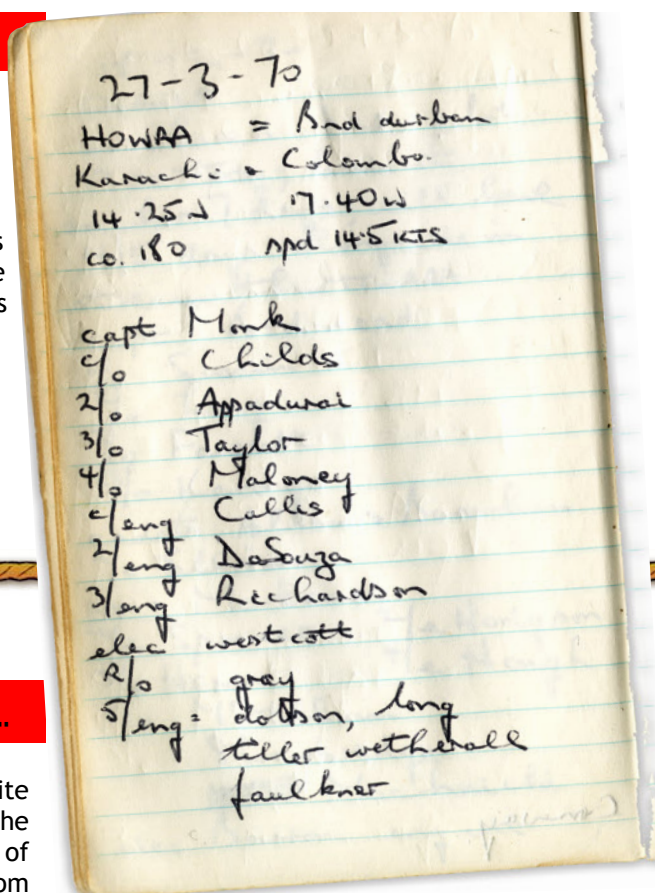 27-3-70
HOWAA = Bnd durban
Karachi & Colombo.
14.25N 17.40W
co. 180 spd 14.5 KTS
capt Monk
c/o Childs
2/o Appadurai
3/o Taylor
4/o Maloney
c/eng Calles
2/eng DaSouza
3/eng Richardson
elec westcott
R/o gray
5/eng = dobson, long
tiller wetherall
faulkner
s
e
s
..
ite
he
of
om